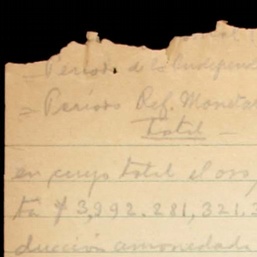 – Período de la Independ
= Período Ref. Moneta
Total –
en cuyo total el oro,
ta $ 3,992.281,321.3
ducción amonedada